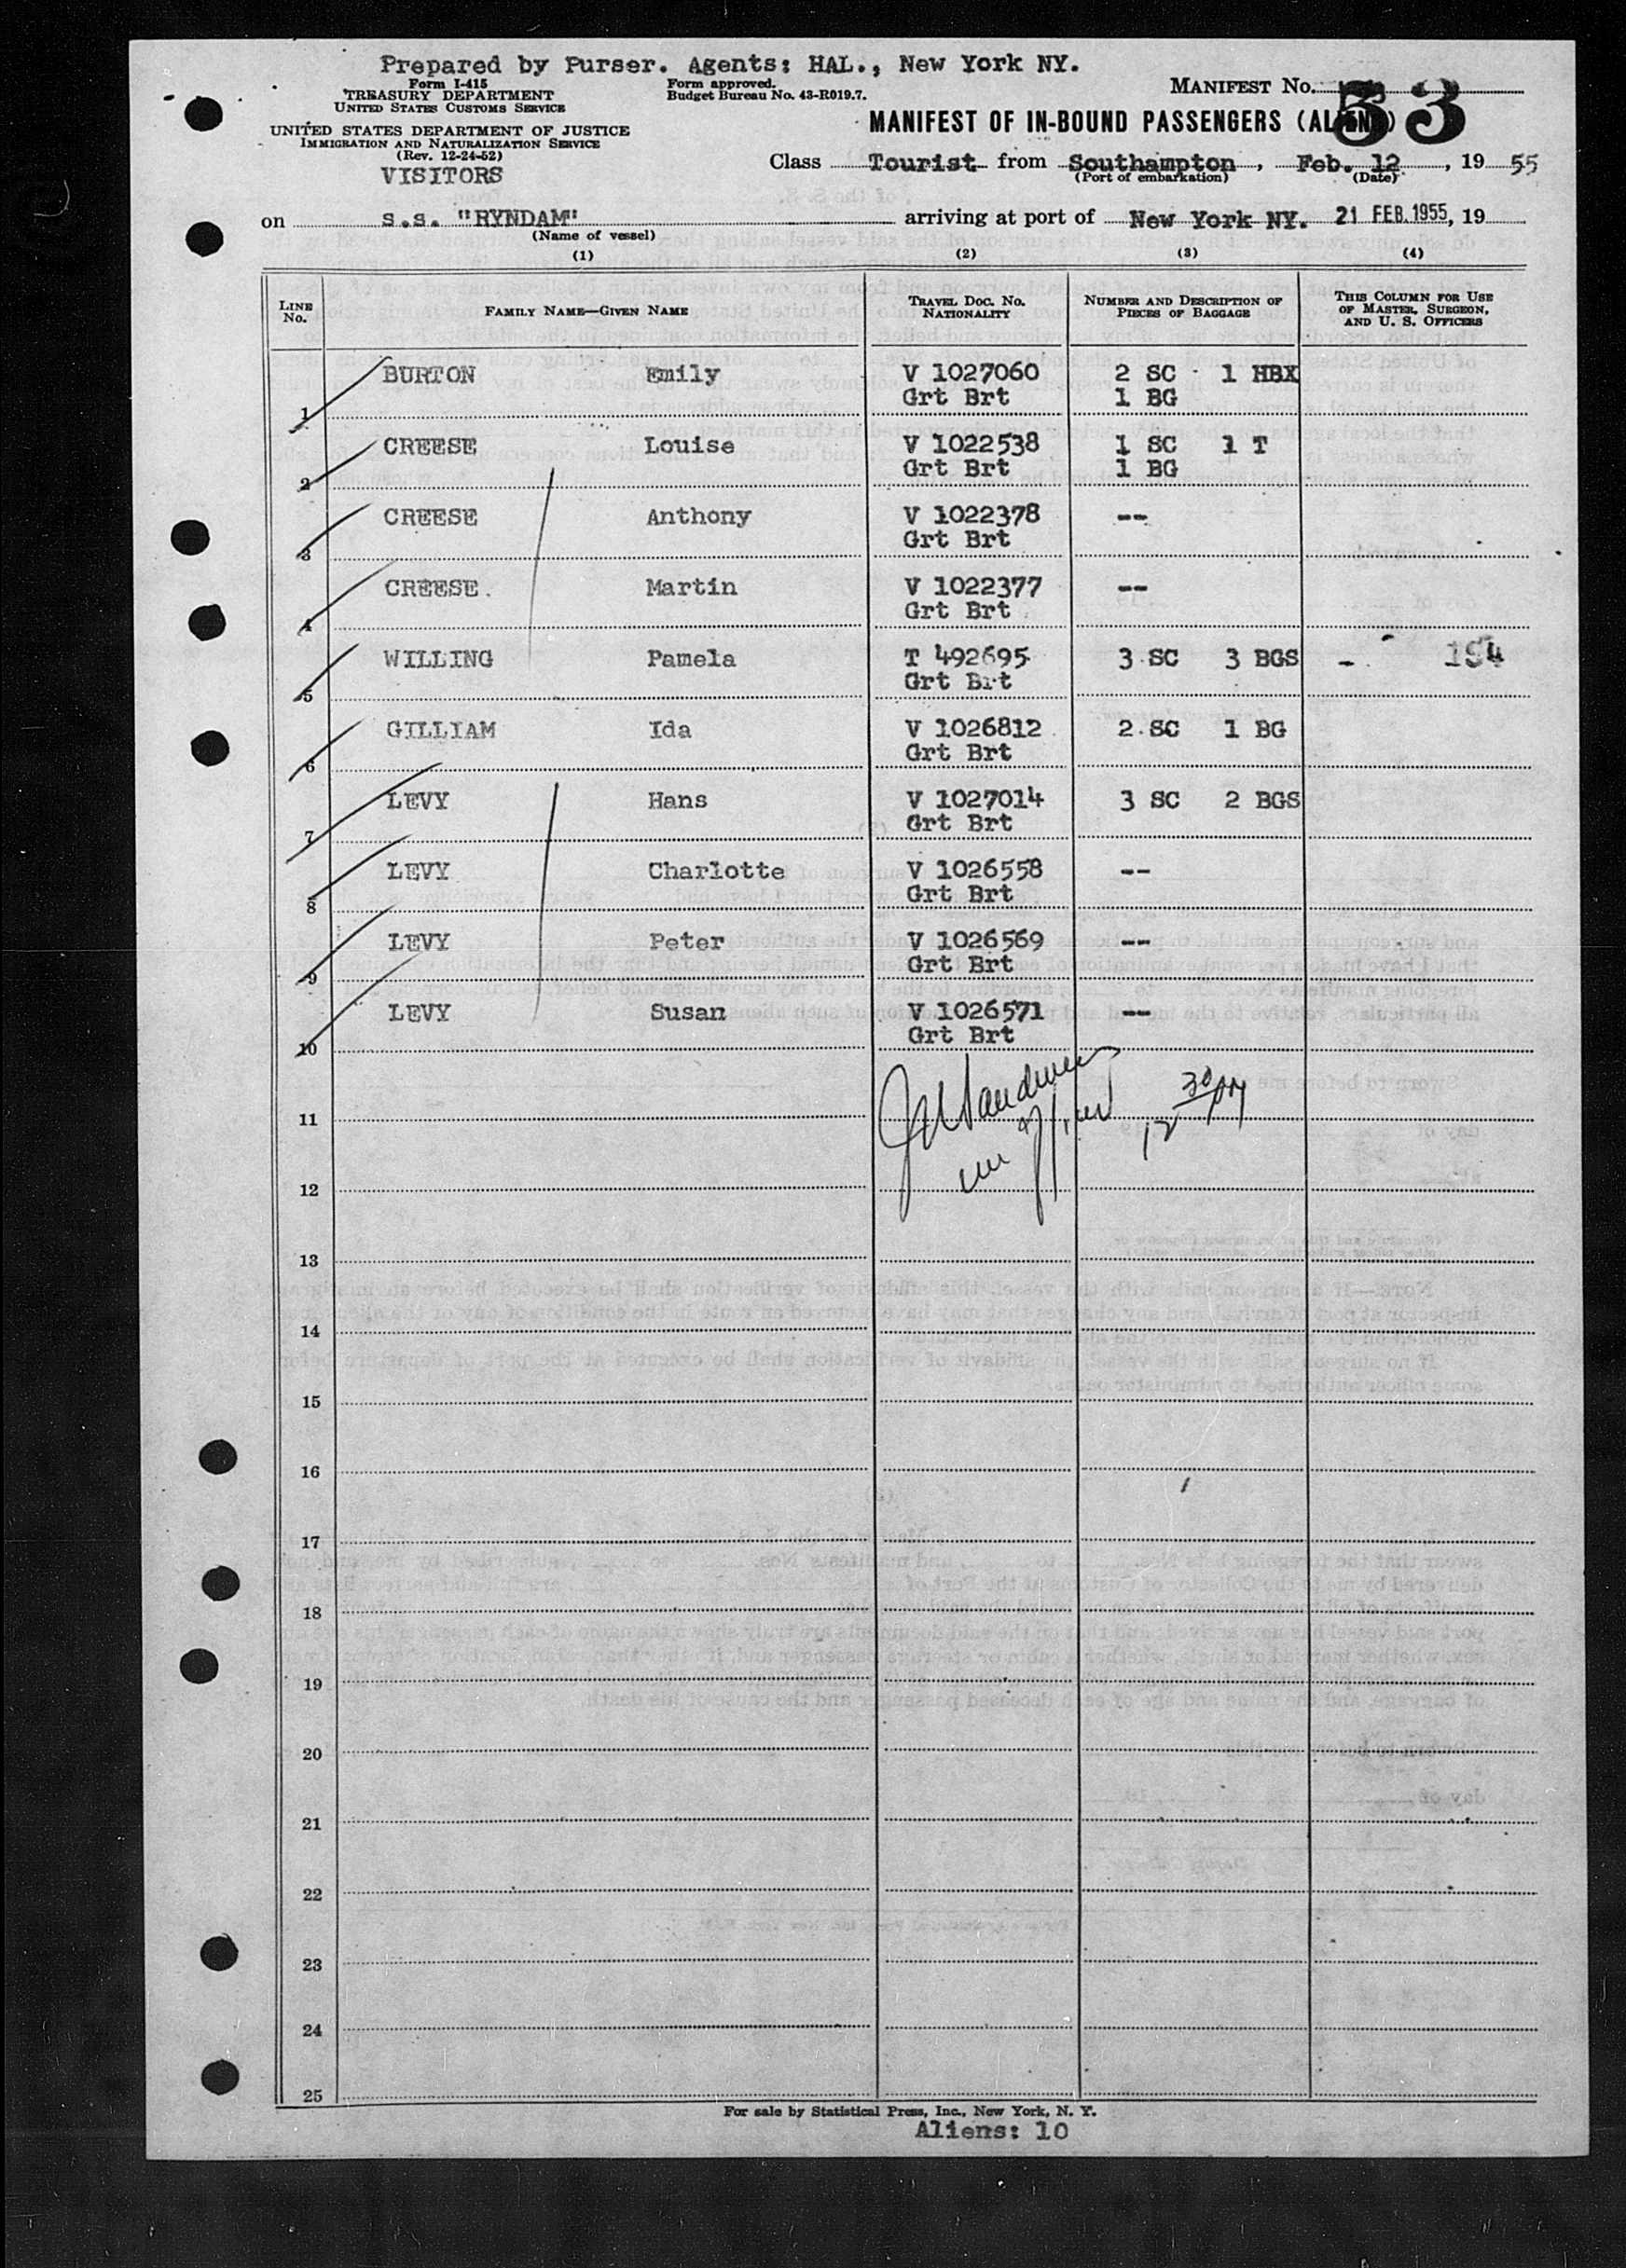 Prepared by Purser. Agents: HAL., New York NY.
Form I-415
TREASURY DEPARTMENT
UNITED STATES CUSTOMS SERVICE
Form approved.
Budget Bureau No. 43-R019.7.
MANIFEST No. 53
UNITED STATES DEPARTMENT OF JUSTICE
IMMIGRATION AND NATURALIZATION SERVICE
(Rev. 12-24-52)
VISITORS
MANIFEST OF IN-BOUND PASSENGERS (ALIENS)
Class Tourist from Southampton, Feb. 12, 19 55
(Port of embarkation) (Date)
on s.s. "RYNDAM" arriving at port of New York NY. 21 FEB. 1955, 19
(Name of vessel)
(1) (2) (3) (4)
LINE No. FAMILY NAME—GIVEN NAME TRAVEL DOC. NO. NATIONALITY NUMBER AND DESCRIPTION OF PIECES OF BAGGAGE THIS COLUMN FOR USE OF MASTER, SURGEON, AND U. S. OFFICERS
BURTON Emily V 1027060 2 SC 1 HBX
1 Grt Brt 1 BG
CREESE Louise V 1022538 1 SC 1 T
2 Grt Brt 1 BG
CREESE Anthony V 1022378 --
3 Grt Brt
CREESE. Martin V 1022377 --
4 Grt Brt
WILLING Pamela T 492695 3 SC 3 BGS - 194
5 Grt Brt
GILLIAM Ida V 1026812 2 SC 1 BG
6 Grt Brt
LEVY Hans V 1027014 3 SC 2 BGS
7 Grt Brt
LEVY Charlotte V 1026558 --
8 Grt Brt
LEVY Peter V 1026569 --
9 Grt Brt
LEVY Susan V 1026571 --
10 Grt Brt
12 30 PM
11
12
13
14
15
16
17
18
19
20
21
22
23
24
25
For sale by Statistical Press, Inc., New York, N. Y.
Aliens: 10